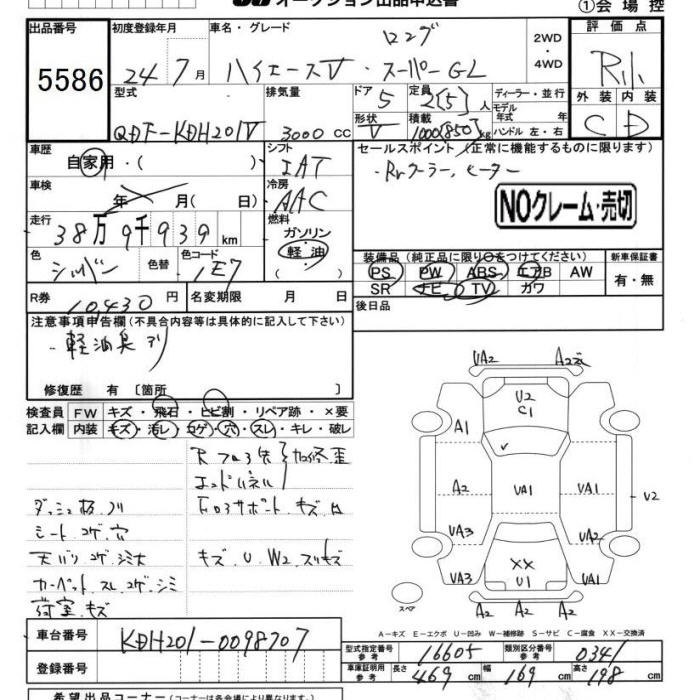 オークション出品申込書
①会場控
出品番号 初度登録年月 車名・グレード ロング 2WD ・ 4WD 評価点
5586
24年7月 ハイエースV・スーパーGL
R小
型式 排気量 ドア 5 定員 2(5)人 ディーラー・並行
モデル年式 年式
外装 内装
QDF-KDH201V 3000cc 形状 V 積載 1000(850)kg ハンドル 左・右
C D
車歴 シフト セールスポイント(正常に機能するものに限ります)
自家用・( ) IAT ・Rrクーラー、ヒーター
車検 冷房
年 月( 日) AAC
NOクレーム・売切
走行 燃料
38万9千939km ガソリン
軽油
色 色替 色コード 装備品(純正品に限り○をつけてください) 新車保証書
シルバー 1E7 PS PW ABS エアB AW 有・無
SR ナビ TV カワ
R券 10,430円 名変期限 月 日 後日品
注意事項申告欄(不具合内容等は具体的に記入して下さい)
・軽油臭アリ
修復歴 有 〔箇所 〕
検査員 FW キズ・飛石・ヒビ割・リペア跡・×要
記入欄 内装 キズ・汚レ・コゲ・穴・スレ・キレ・破レ
エンドパネル
シート コゲ 穴
カーペット スレ コゲ シミ
荷室 キズ
キズ U W2 スリキズ
UA2 A2
U2
C1
A1
A2 UA1 UA1 U2
UA3 UA2
XX
UA3 U1 A3
スペア A2 A2 A2
A－キズ E－エクボ U－凹み W－補修跡 S－サビ C－腐食 XX－交換済
車台番号 KDH201-0098707
型式指定番号 参考 16605 類別区分番号 参考 0341
登録番号
車庫証明用 参考 長さ 469cm 幅 169cm 高さ 198cm
希望出品コーナー(コーナーは各会場により異なります)